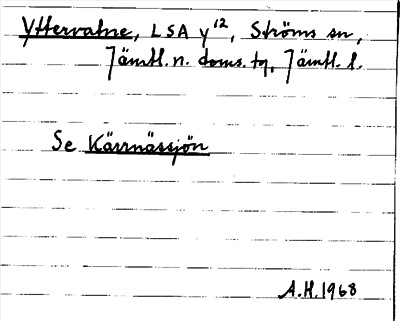 Yttervatne, LSA y¹², Ströms sn,
Jämtl. n. doms. tg, Jämtl. l.
Se Kärrnässjön
A.H. 1968